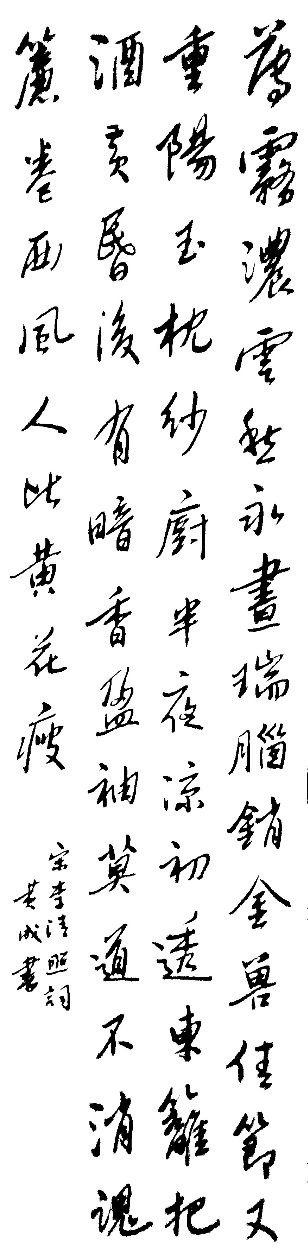 薄霧濃雲愁永晝瑞腦銷金獸佳節又
重陽玉枕紗廚半夜涼初透東籬把
酒黃昏後有暗香盈袖莫道不消魂
簾卷西風人比黃花瘦
宋李清照詞
黄成書